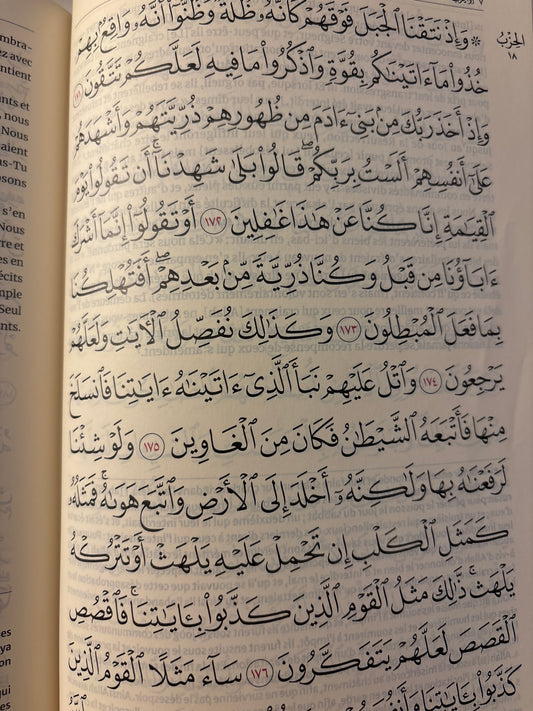 mbra-
ez avec
entient
nts et
, nous
Nous
aient
as-Tu
osons
s'en
Nous
rre et
es en
écits
mple
Seul
nts.
ces
ya
on
qui
الحِزْبُ
١٨
۞ وَإِذْ نَتَقْنَا ٱلْجَبَلَ فَوْقَهُمْ كَأَنَّهُۥ ظُلَّةٌ وَظَنُّوٓا۟ أَنَّهُۥ وَاقِعٌۢ بِهِمْ
خُذُوا۟ مَآ ءَاتَيْنَٰكُم بِقُوَّةٍ وَٱذْكُرُوا۟ مَا فِيهِ لَعَلَّكُمْ تَتَّقُونَ ١٧١
وَإِذْ أَخَذَ رَبُّكَ مِنۢ بَنِىٓ ءَادَمَ مِن ظُهُورِهِمْ ذُرِّيَّتَهُمْ وَأَشْهَدَهُمْ
عَلَىٰٓ أَنفُسِهِمْ أَلَسْتُ بِرَبِّكُمْ ۖ قَالُوا۟ بَلَىٰ شَهِدْنَآ ۚ أَن تَقُولُوا۟ يَوْمَ
ٱلْقِيَٰمَةِ إِنَّا كُنَّا عَنْ هَٰذَا غَٰفِلِينَ ١٧٢ أَوْ تَقُولُوٓا۟ إِنَّمَآ أَشْرَكَ
ءَابَآؤُنَا مِن قَبْلُ وَكُنَّا ذُرِّيَّةً مِّنۢ بَعْدِهِمْ ۖ أَفَتُهْلِكُنَا
بِمَا فَعَلَ ٱلْمُبْطِلُونَ ١٧٣ وَكَذَٰلِكَ نُفَصِّلُ ٱلْءَايَٰتِ وَلَعَلَّهُمْ
يَرْجِعُونَ ١٧٤ وَٱتْلُ عَلَيْهِمْ نَبَأَ ٱلَّذِىٓ ءَاتَيْنَٰهُ ءَايَٰتِنَا فَٱنسَلَخَ
مِنْهَا فَأَتْبَعَهُ ٱلشَّيْطَٰنُ فَكَانَ مِنَ ٱلْغَاوِينَ ١٧٥ وَلَوْ شِئْنَا
لَرَفَعْنَٰهُ بِهَا وَلَٰكِنَّهُۥٓ أَخْلَدَ إِلَى ٱلْأَرْضِ وَٱتَّبَعَ هَوَىٰهُ ۚ فَمَثَلُهُۥ
كَمَثَلِ ٱلْكَلْبِ إِن تَحْمِلْ عَلَيْهِ يَلْهَثْ أَوْ تَتْرُكْهُ
يَلْهَث ۚ ذَّٰلِكَ مَثَلُ ٱلْقَوْمِ ٱلَّذِينَ كَذَّبُوا۟ بِـَٔايَٰتِنَا ۚ فَٱقْصُصِ
ٱلْقَصَصَ لَعَلَّهُمْ يَتَفَكَّرُونَ ١٧٦ سَآءَ مَثَلًا ٱلْقَوْمُ ٱلَّذِينَ
كَذَّبُوا۟ بِـَٔايَٰتِنَا وَأَنفُسَهُمْ